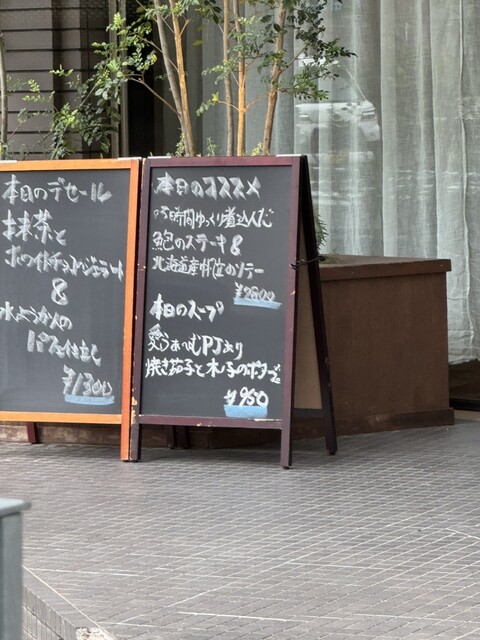 本日のデセール
抹茶と
ホワイトチョコジェラート
&
水ようかんの
パフェ仕立て
¥1300
本日のオススメ
5時間ゆっくり煮込んだ
鮑のステーキ&
北海道産帆立のソテー
¥2800
本日のスープ
愛う〜むPJより
焼き茄子と木ノ子のポタージュ
¥950